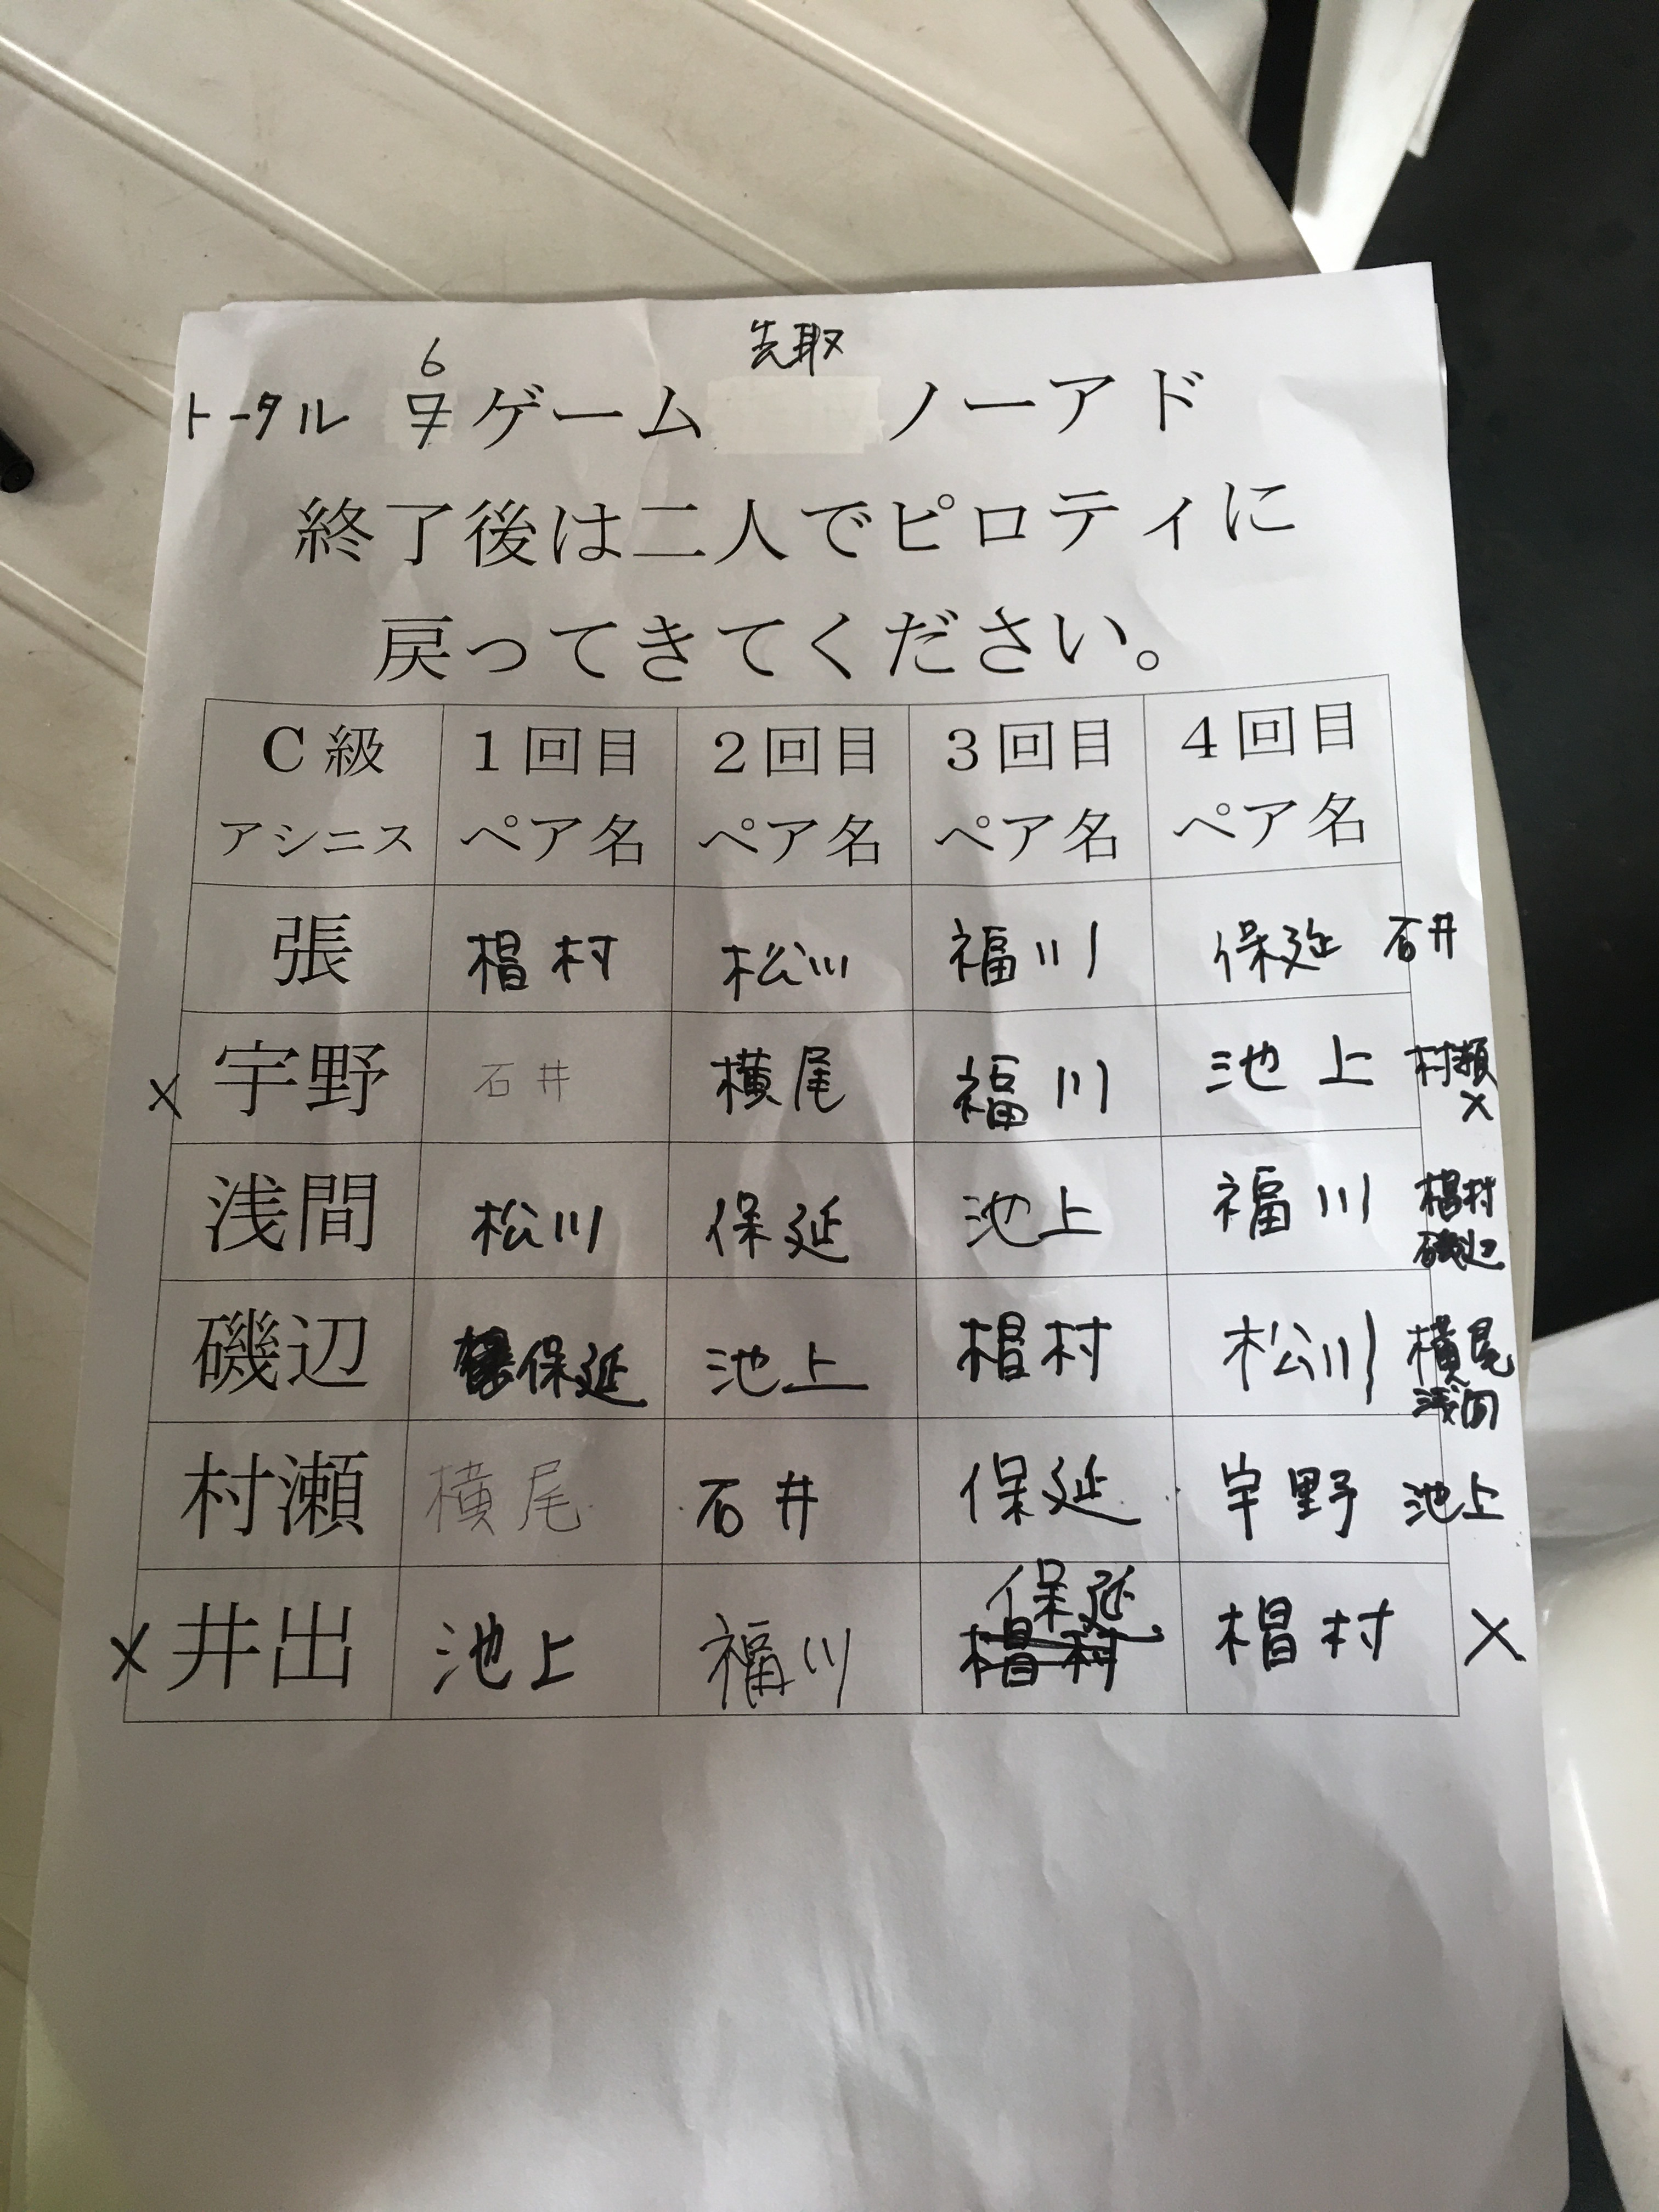 6 先取
トータル 7 ゲーム ノーアド
終了後は二人でピロティに
戻ってきてください。
C級 1回目 2回目 3回目 4回目
アシニス ペア名 ペア名 ペア名 ペア名
張 椙村 松川 福川 保延 石井
× 宇野 石井 横尾 福川 池上 村瀬 ×
浅間 松川 保延 池上 福川 椙村 磯辺
磯辺 保延 池上 椙村 松川 横尾 浅間
村瀬 横尾 石井 保延 宇野 池上
保延
× 井出 池上 福川 椙村 椙村 ×